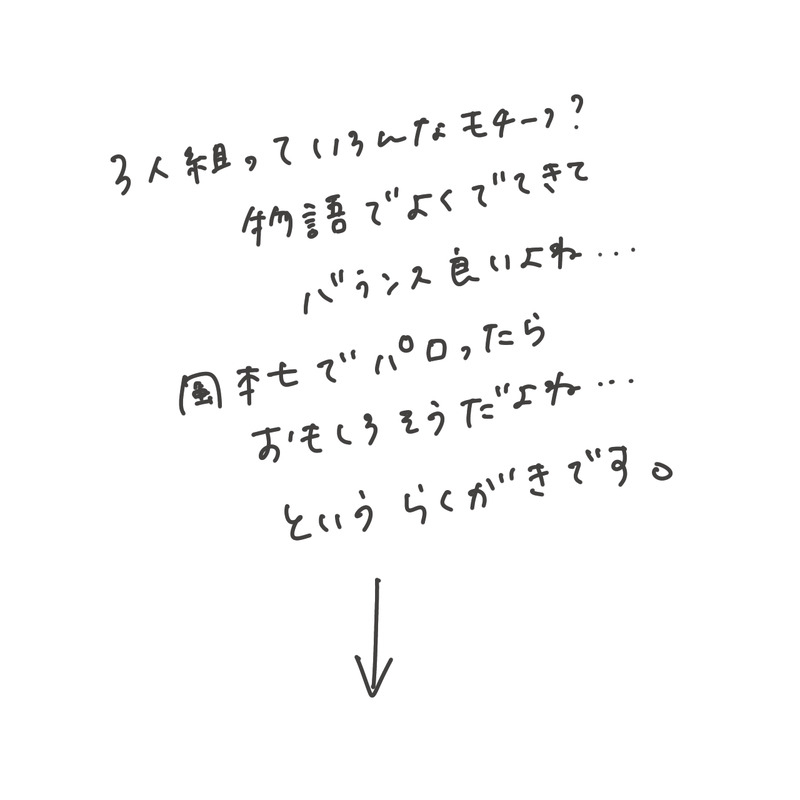 3人組っていろんなモチーフ?
物語でよくでてきて
バランス良いよね…
でパロったら
おもしろそうだよね…
という らくがきです。